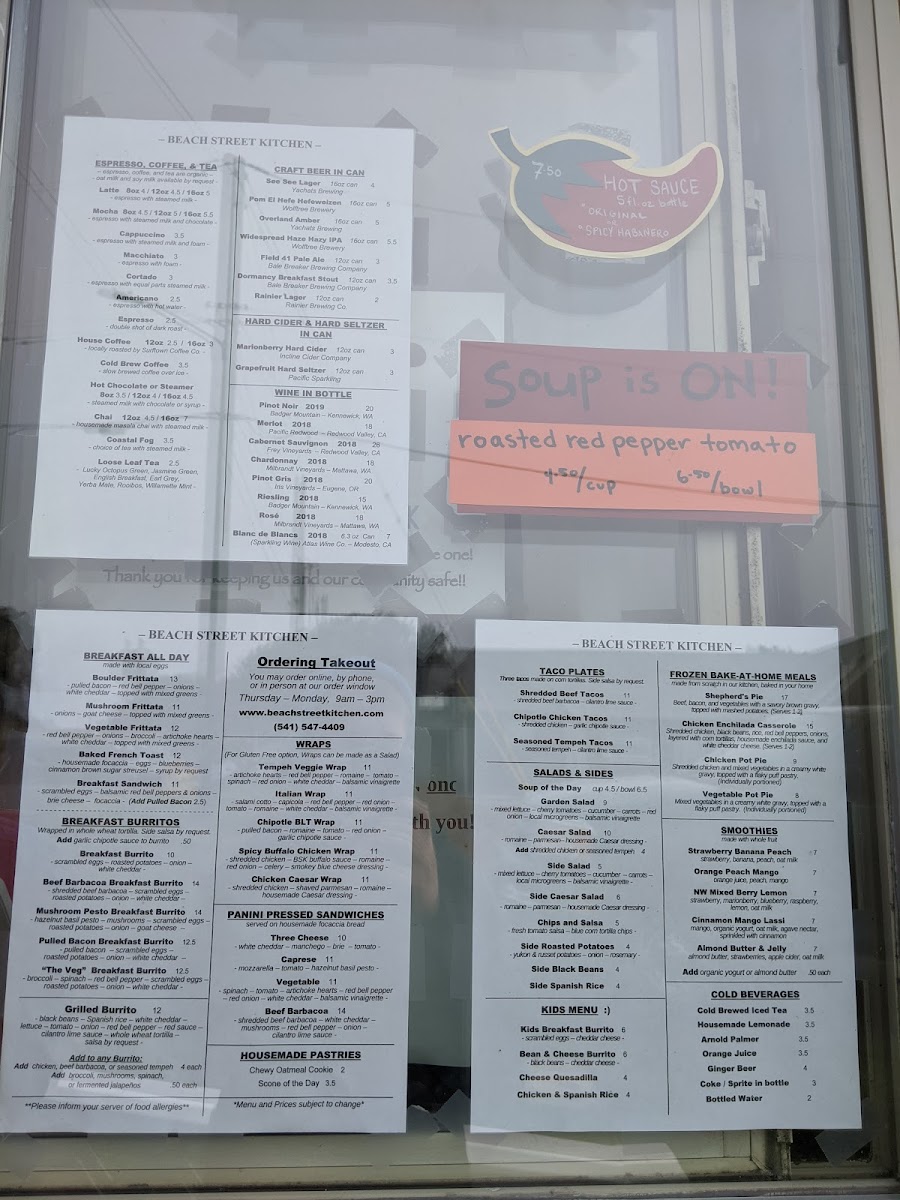 – BEACH STREET KITCHEN –
ESPRESSO, COFFEE, & TEA
– espresso, coffee, and tea are organic –
- oat milk and soy milk available by request -
Latte 8oz 4 / 12oz 4.5 / 16oz 5
- espresso with steamed milk -
Mocha 8oz 4.5 / 12oz 5 / 16oz 5.5
- espresso with steamed milk and chocolate -
Cappuccino 3.5
- espresso with steamed milk and foam -
Macchiato 3
- espresso with foam -
Cortado 3
- espresso with equal parts steamed milk -
Americano 2.5
- espresso with hot water -
Espresso 2.5
- double shot of dark roast -
House Coffee 12oz 2.5 / 16oz 3
- locally roasted by Surftown Coffee Co -
Cold Brew Coffee 3.5
- slow brewed coffee over ice -
Hot Chocolate or Steamer
8oz 3.5 / 12oz 4 / 16oz 4.5
- steamed milk with chocolate or syrup -
Chai 12oz 4.5 / 16oz 7
- housemade masala chai with steamed milk -
Coastal Fog 3.5
- choice of tea with steamed milk -
Loose Leaf Tea 2.5
- Lucky Octopus Green, Jasmine Green,
English Breakfast, Earl Grey,
Yerba Mate, Rooibos, Willamette Mint -
CRAFT BEER IN CAN
See See Lager 16oz can 4
Yachats Brewing
Pom El Hefe Hefeweizen 16oz can 5
Wolftree Brewery
Overland Amber 16oz can 5
Yachats Brewing
Widespread Haze Hazy IPA 16oz can 5.5
Wolftree Brewery
Field 41 Pale Ale 12oz can 3
Bale Breaker Brewing Company
Dormancy Breakfast Stout 12oz can 3.5
Bale Breaker Brewing Company
Rainier Lager 12oz can 2
Rainier Brewing Co.
HARD CIDER & HARD SELTZER
IN CAN
Marionberry Hard Cider 12oz can 3
Incline Cider Company
Grapefruit Hard Seltzer 12oz can 3
Pacific Sparkling
WINE IN BOTTLE
Pinot Noir 2019 20
Badger Mountain – Kennewick, WA
Merlot 2018 18
Pacific Redwood – Redwood Valley, CA
Cabernet Sauvignon 2018 26
Frey Vineyards – Redwood Valley, CA
Chardonnay 2018 18
Milbrandt Vineyards – Mattawa, WA
Pinot Gris 2018 20
Iris Vineyards – Eugene, OR
Riesling 2018 15
Badger Mountain – Kennewick, WA
Rosé 2018 18
Milbrandt Vineyards – Mattawa, WA
Blanc de Blancs 2018 6.3 oz Can 7
(Sparkling Wine) Atlas Wine Co. – Modesto, CA
7.50
HOT SAUCE
5 fl. oz bottle
*ORIGINAL
or
*SPICY HABANERO
Soup is ON!
roasted red pepper tomato
4.50/cup 6.50/bowl
e one!
Thank you for keeping us and our community safe!!
– BEACH STREET KITCHEN –
BREAKFAST ALL DAY
made with local eggs
Boulder Frittata 13
- pulled bacon – red bell pepper – onions –
white cheddar – topped with mixed greens -
Mushroom Frittata 11
- onions – goat cheese – topped with mixed greens -
Vegetable Frittata 12
- red bell pepper – onions – broccoli – artichoke hearts –
white cheddar – topped with mixed greens -
Baked French Toast 12
- housemade focaccia – eggs – blueberries –
cinnamon brown sugar streusel – syrup by request -
Breakfast Sandwich 11
- scrambled eggs – balsamic red bell peppers & onions –
brie cheese – focaccia - (Add Pulled Bacon 2.5)
BREAKFAST BURRITOS
Wrapped in whole wheat tortilla. Side salsa by request.
Add garlic chipotle sauce to burrito .50
Breakfast Burrito 10
- scrambled eggs – roasted potatoes – onion –
white cheddar -
Beef Barbacoa Breakfast Burrito 14
- shredded beef barbacoa – scrambled eggs –
roasted potatoes – onion – white cheddar -
Mushroom Pesto Breakfast Burrito 14
- hazelnut basil pesto – mushrooms – scrambled eggs –
roasted potatoes – onion – goat cheese –
Pulled Bacon Breakfast Burrito 12.5
- pulled bacon – scrambled eggs –
roasted potatoes – onion – white cheddar –
“The Veg” Breakfast Burrito 12.5
- broccoli – spinach – red bell pepper – scrambled eggs –
roasted potatoes – onion – white cheddar -
Grilled Burrito 12
- black beans – Spanish rice – white cheddar –
lettuce – tomato – onion – red bell pepper – red sauce –
cilantro lime sauce – whole wheat tortilla –
salsa by request -
Add to any Burrito:
Add chicken, beef barbacoa, or seasoned tempeh 4 each
Add broccoli, mushrooms, spinach,
or fermented jalapeños .50 each
**Please inform your server of food allergies**
Ordering Takeout
You may order online, by phone,
or in person at our order window
Thursday – Monday, 9am – 3pm
www.beachstreetkitchen.com
(541) 547-4409
WRAPS
(For Gluten Free option, Wraps can be made as a Salad)
Tempeh Veggie Wrap 11
- artichoke hearts – red bell pepper – romaine – tomato –
spinach – red onion – white cheddar – balsamic vinaigrette
Italian Wrap 11
- salami cotto – capicola – red bell pepper – red onion –
tomato – romaine – white cheddar – balsamic vinaigrette -
Chipotle BLT Wrap 11
- pulled bacon – romaine – tomato – red onion –
garlic chipotle sauce -
Spicy Buffalo Chicken Wrap 11
- shredded chicken – BSK buffalo sauce – romaine –
red onion – celery – smokey blue cheese dressing -
Chicken Caesar Wrap 11
- shredded chicken – shaved parmesan – romaine –
housemade Caesar dressing -
PANINI PRESSED SANDWICHES
served on housemade focaccia bread
Three Cheese 10
- white cheddar – manchego – brie – tomato -
Caprese 11
- mozzarella – tomato – hazelnut basil pesto -
Vegetable 11
- spinach – tomato – artichoke hearts – red bell pepper
– red onion – white cheddar – balsamic vinaigrette -
Beef Barbacoa 14
- shredded beef barbacoa – white cheddar –
mushrooms – red bell pepper – onion –
cilantro lime sauce -
HOUSEMADE PASTRIES
Chewy Oatmeal Cookie 2
Scone of the Day 3.5
*Menu and Prices subject to change*
, onc
th you!
– BEACH STREET KITCHEN –
TACO PLATES
Three tacos made on corn tortillas. Side salsa by request
Shredded Beef Tacos 11
- shredded beef barbacoa – cilantro lime sauce -
Chipotle Chicken Tacos 11
- shredded chicken – garlic chipotle sauce -
Seasoned Tempeh Tacos 11
- seasoned tempeh – cilantro lime sauce -
SALADS & SIDES
Soup of the Day cup 4.5 / bowl 6.5
Garden Salad 9
- mixed lettuce – cherry tomatoes – cucumber – carrots – red
onion – local microgreens – balsamic vinaigrette
Caesar Salad 10
- romaine – parmesan – housemade Caesar dressing -
Add shredded chicken or seasoned tempeh 4
Side Salad 5
- mixed lettuce – cherry tomatoes – cucumber – carrots –
local microgreens – balsamic vinaigrette -
Side Caesar Salad 6
- romaine – parmesan – housemade Caesar dressing -
Chips and Salsa 5
- fresh tomato salsa – blue corn tortilla chips -
Side Roasted Potatoes 4
- yukon & russet potatoes – onion – rosemary -
Side Black Beans 4
Side Spanish Rice 4
KIDS MENU :)
Kids Breakfast Burrito 6
- scrambled eggs – cheddar cheese -
Bean & Cheese Burrito 6
- black beans – cheddar cheese -
Cheese Quesadilla 4
Chicken & Spanish Rice 4
FROZEN BAKE-AT-HOME MEALS
made from scratch in our kitchen, baked in your home
Shepherd's Pie 17
Beef, bacon, and vegetables with a savory brown gravy,
topped with mashed potatoes. (Serves 1-2)
Chicken Enchilada Casserole 15
Shredded chicken, black beans, rice, red bell peppers, onions,
layered with corn tortillas, housemade enchilada sauce, and
white cheddar cheese. (Serves 1-2)
Chicken Pot Pie 9
Shredded chicken and mixed vegetables in a creamy white
gravy, topped with a flaky puff pastry.
(Individually portioned)
Vegetable Pot Pie 8
Mixed vegetables in a creamy white gravy, topped with a
flaky puff pastry. (Individually portioned)
SMOOTHIES
made with whole fruit
Strawberry Banana Peach 7
strawberry, banana, peach, oat milk
Orange Peach Mango 7
orange juice, peach, mango
NW Mixed Berry Lemon 7
strawberry, marionberry, blueberry, raspberry,
lemon, oat milk
Cinnamon Mango Lassi 7
mango, organic yogurt, oat milk, agave nectar,
sprinkled with cinnamon
Almond Butter & Jelly 7
almond butter, strawberries, apple cider, oat milk
Add organic yogurt or almond butter .50 each
COLD BEVERAGES
Cold Brewed Iced Tea 3.5
Housemade Lemonade 3.5
Arnold Palmer 3.5
Orange Juice 3.5
Ginger Beer 4
Coke / Sprite in bottle 3
Bottled Water 2